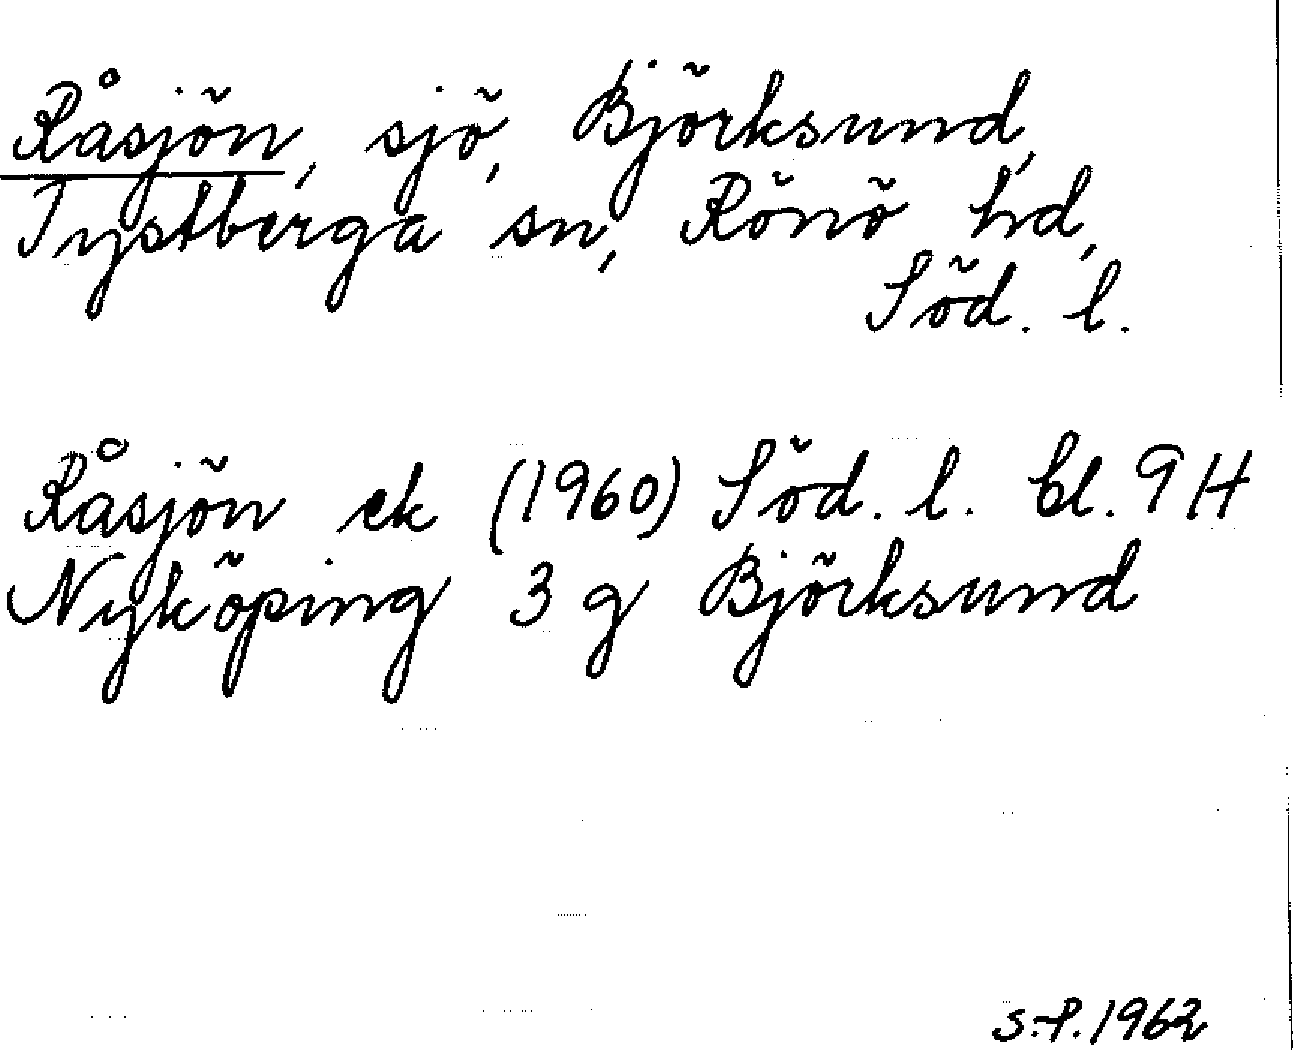 Råsjön, sjö, Björksund,
Tystberga sn, Rönö hd,
Söd. l.
Råsjön ek (1960) Söd. l. bl. 9H
Nyköping 3 g Björksund
S.P. 1962